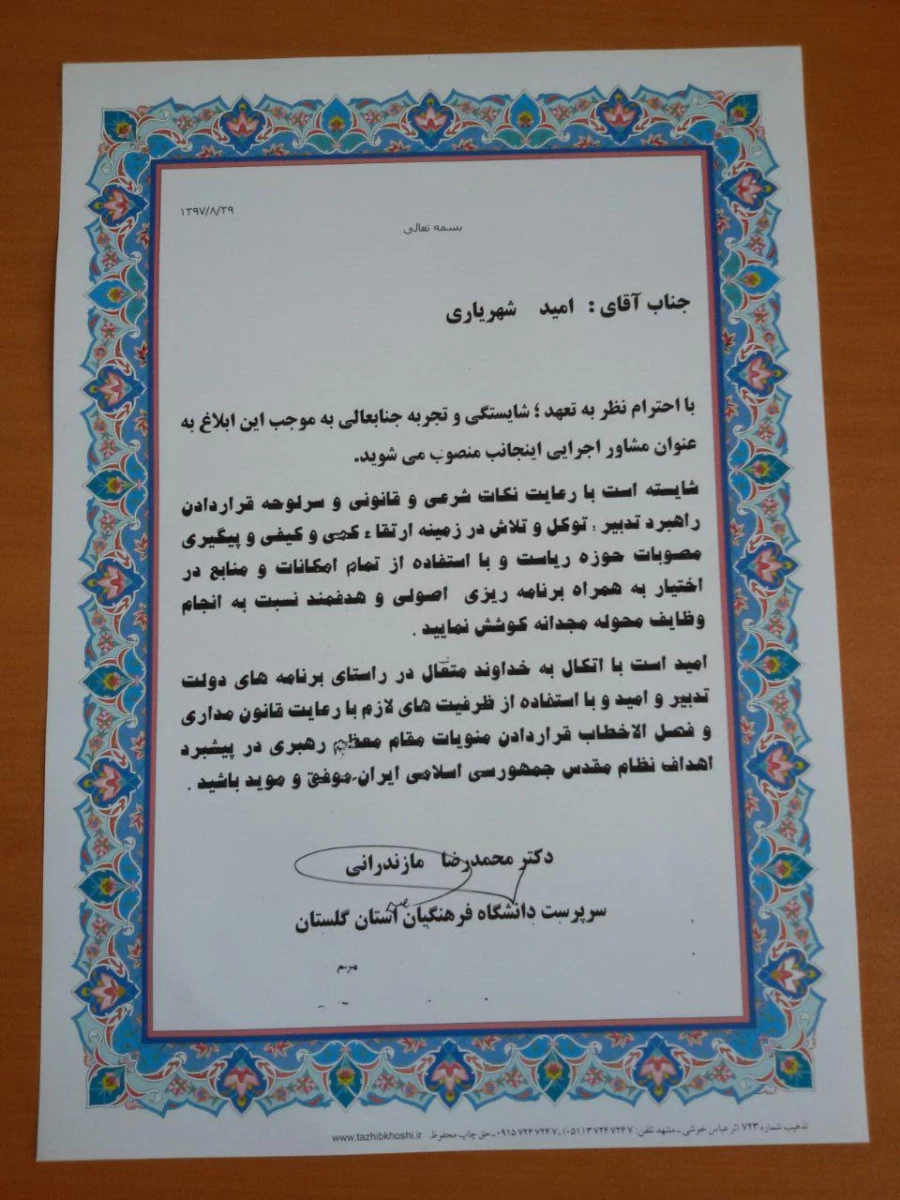 ۱۳۹۷/۸/۲۹
بسمه تعالی
جناب آقای : امید شهریاری
با احترام نظر به تعهد ؛ شایستگی و تجربه جنابعالی به موجب این ابلاغ به
عنوان مشاور اجرایی اینجانب منصوب می شوید.
شایسته است با رعایت نکات شرعی و قانونی و سرلوحه قراردادن
راهبرد تدبیر ، توکل و تلاش در زمینه ارتقاء کمی و کیفی و پیگیری
مصوبات حوزه ریاست و با استفاده از تمام امکانات و منابع در
اختیار به همراه برنامه ریزی اصولی و هدفمند نسبت به انجام
وظایف محوله مجدانه کوشش نمایید .
امید است با اتکال به خداوند متعال در راستای برنامه های دولت
تدبیر و امید و با استفاده از ظرفیت های لازم با رعایت قانون مداری
و فصل الاخطاب قراردادن منویات مقام معظم رهبری در پیشبرد
اهداف نظام مقدس جمهورسی اسلامی ایران موفق و موید باشید .
دکتر محمدرضا مازندرانی
سرپرست دانشگاه فرهنگیان استان گلستان
تذهیب شماره ۷۲۳ اثر عباس خوشی - مشهد تلفن: ۳۷۲۴۷۲۴۷ (۰۵۱) - ۰۹۱۵۷۲۴۷۲۴۷ - حق چاپ محفوظ www.tazhibkhoshi.ir